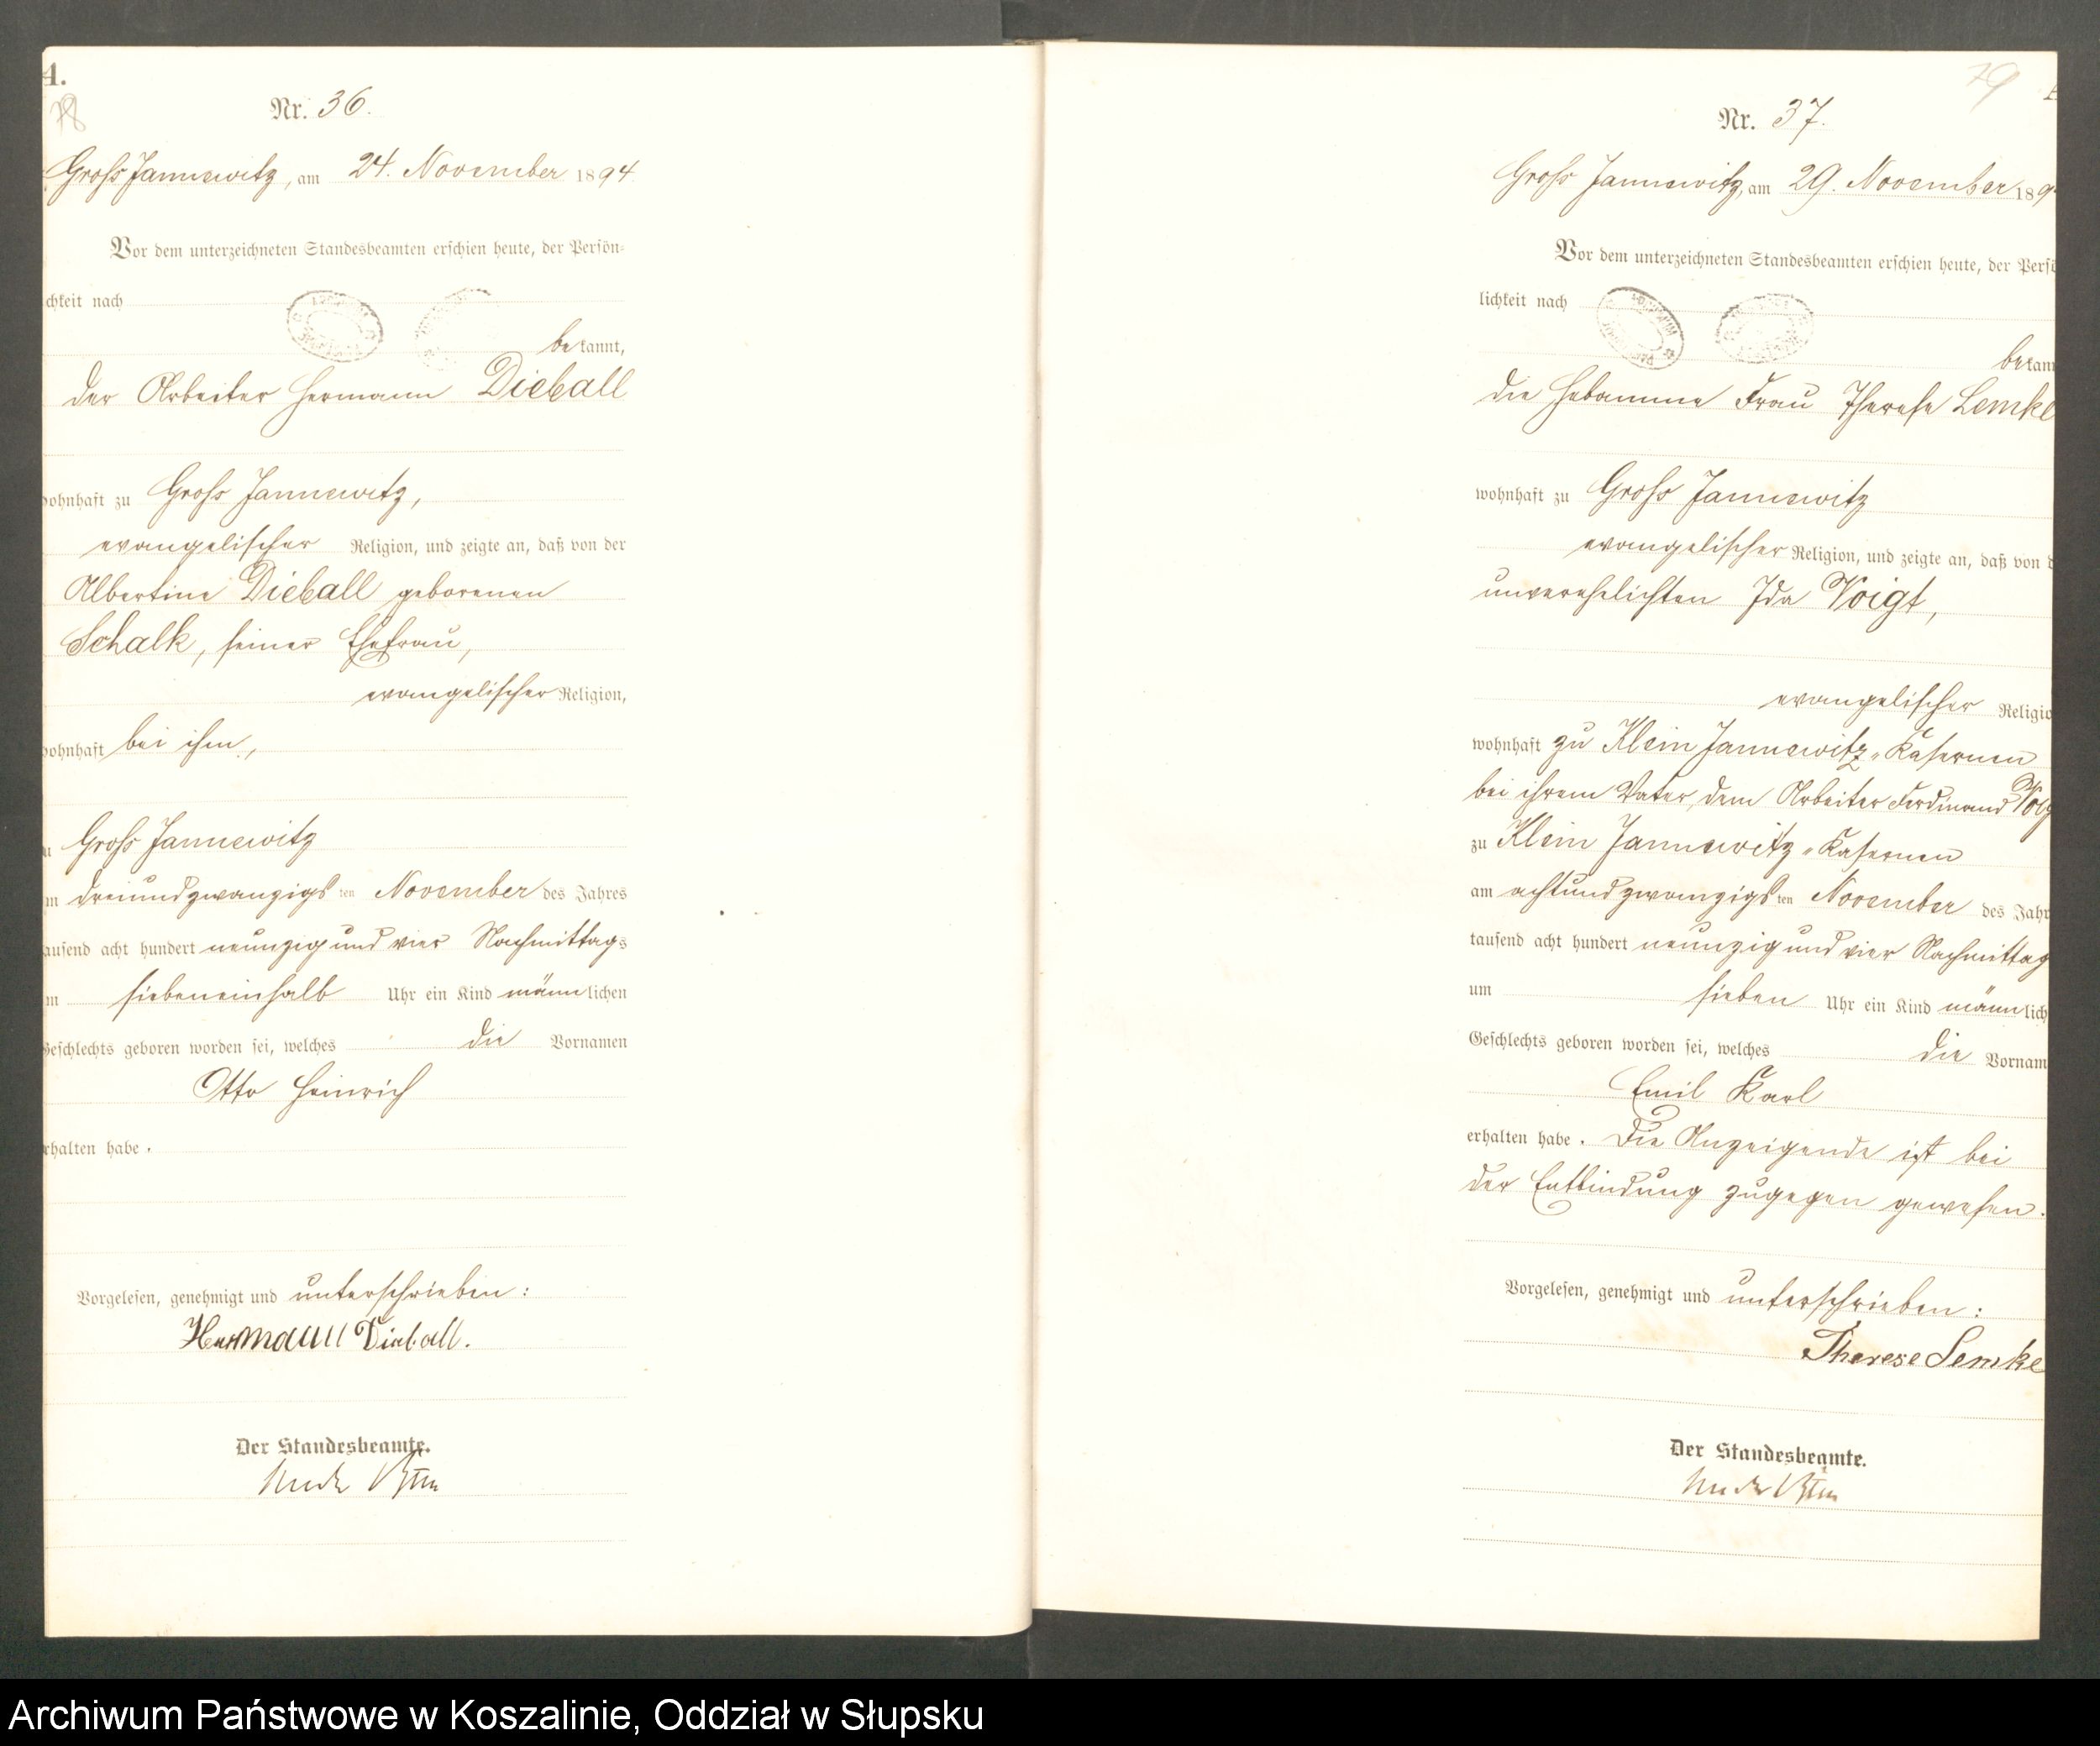 4.
78
Nr. 36.
Groß Jannewitz, am 24. November 1894
Vor dem unterzeichneten Standesbeamten erschien heute, der Persön-
chkeit nach
bekannt,
der Arbeiter Hermann Dieball
ohnhaft zu Groß Jannewitz,
evangelischer Religion, und zeigte an, daß von der
Albertine Dieball geborenen
Schalk, seiner Ehefrau,
evangelischer Religion,
ohnhaft bei ihm,
u Groß Jannewitz
m dreiundzwanzigsten November des Jahres
ausend acht hundert neunzig und vier Nachmittags
m siebeneinhalb Uhr ein Kind männlichen
Geschlechts geboren worden sei, welches die Vornamen
Otto Heinrich
rhalten habe.
Vorgelesen, genehmigt und unterschrieben:
Hermann Dieball.
Der Standesbeamte.
79
Nr. 37.
Groß Jannewitz, am 29. November 189
Vor dem unterzeichneten Standesbeamten erschien heute, der Persö
lichkeit nach
bekann
die Hebamme Frau Therese Lemke
wohnhaft zu Groß Jannewitz
evangelischer Religion, und zeigte an, daß von d
unverehelichten Ida Voigt,
evangelischer Religio
wohnhaft zu Klein Jannewitz-Kasernen
bei ihrem Vater, dem Arbeiter Ferdinand Voig
zu Klein Jannewitz-Kasernen
am achtundzwanzigsten November des Jahr
tausend acht hundert neunzig und vier Nachmittag
um sieben Uhr ein Kind männlich
Geschlechts geboren worden sei, welches die Vornam
Emil Karl
erhalten habe. Die Anzeigende ist bei
der Entbindung zugegen gewesen.
Vorgelesen, genehmigt und unterschrieben:
Therese Lemke
Der Standesbeamte.
Archiwum Państwowe w Koszalinie, Oddział w Słupsku